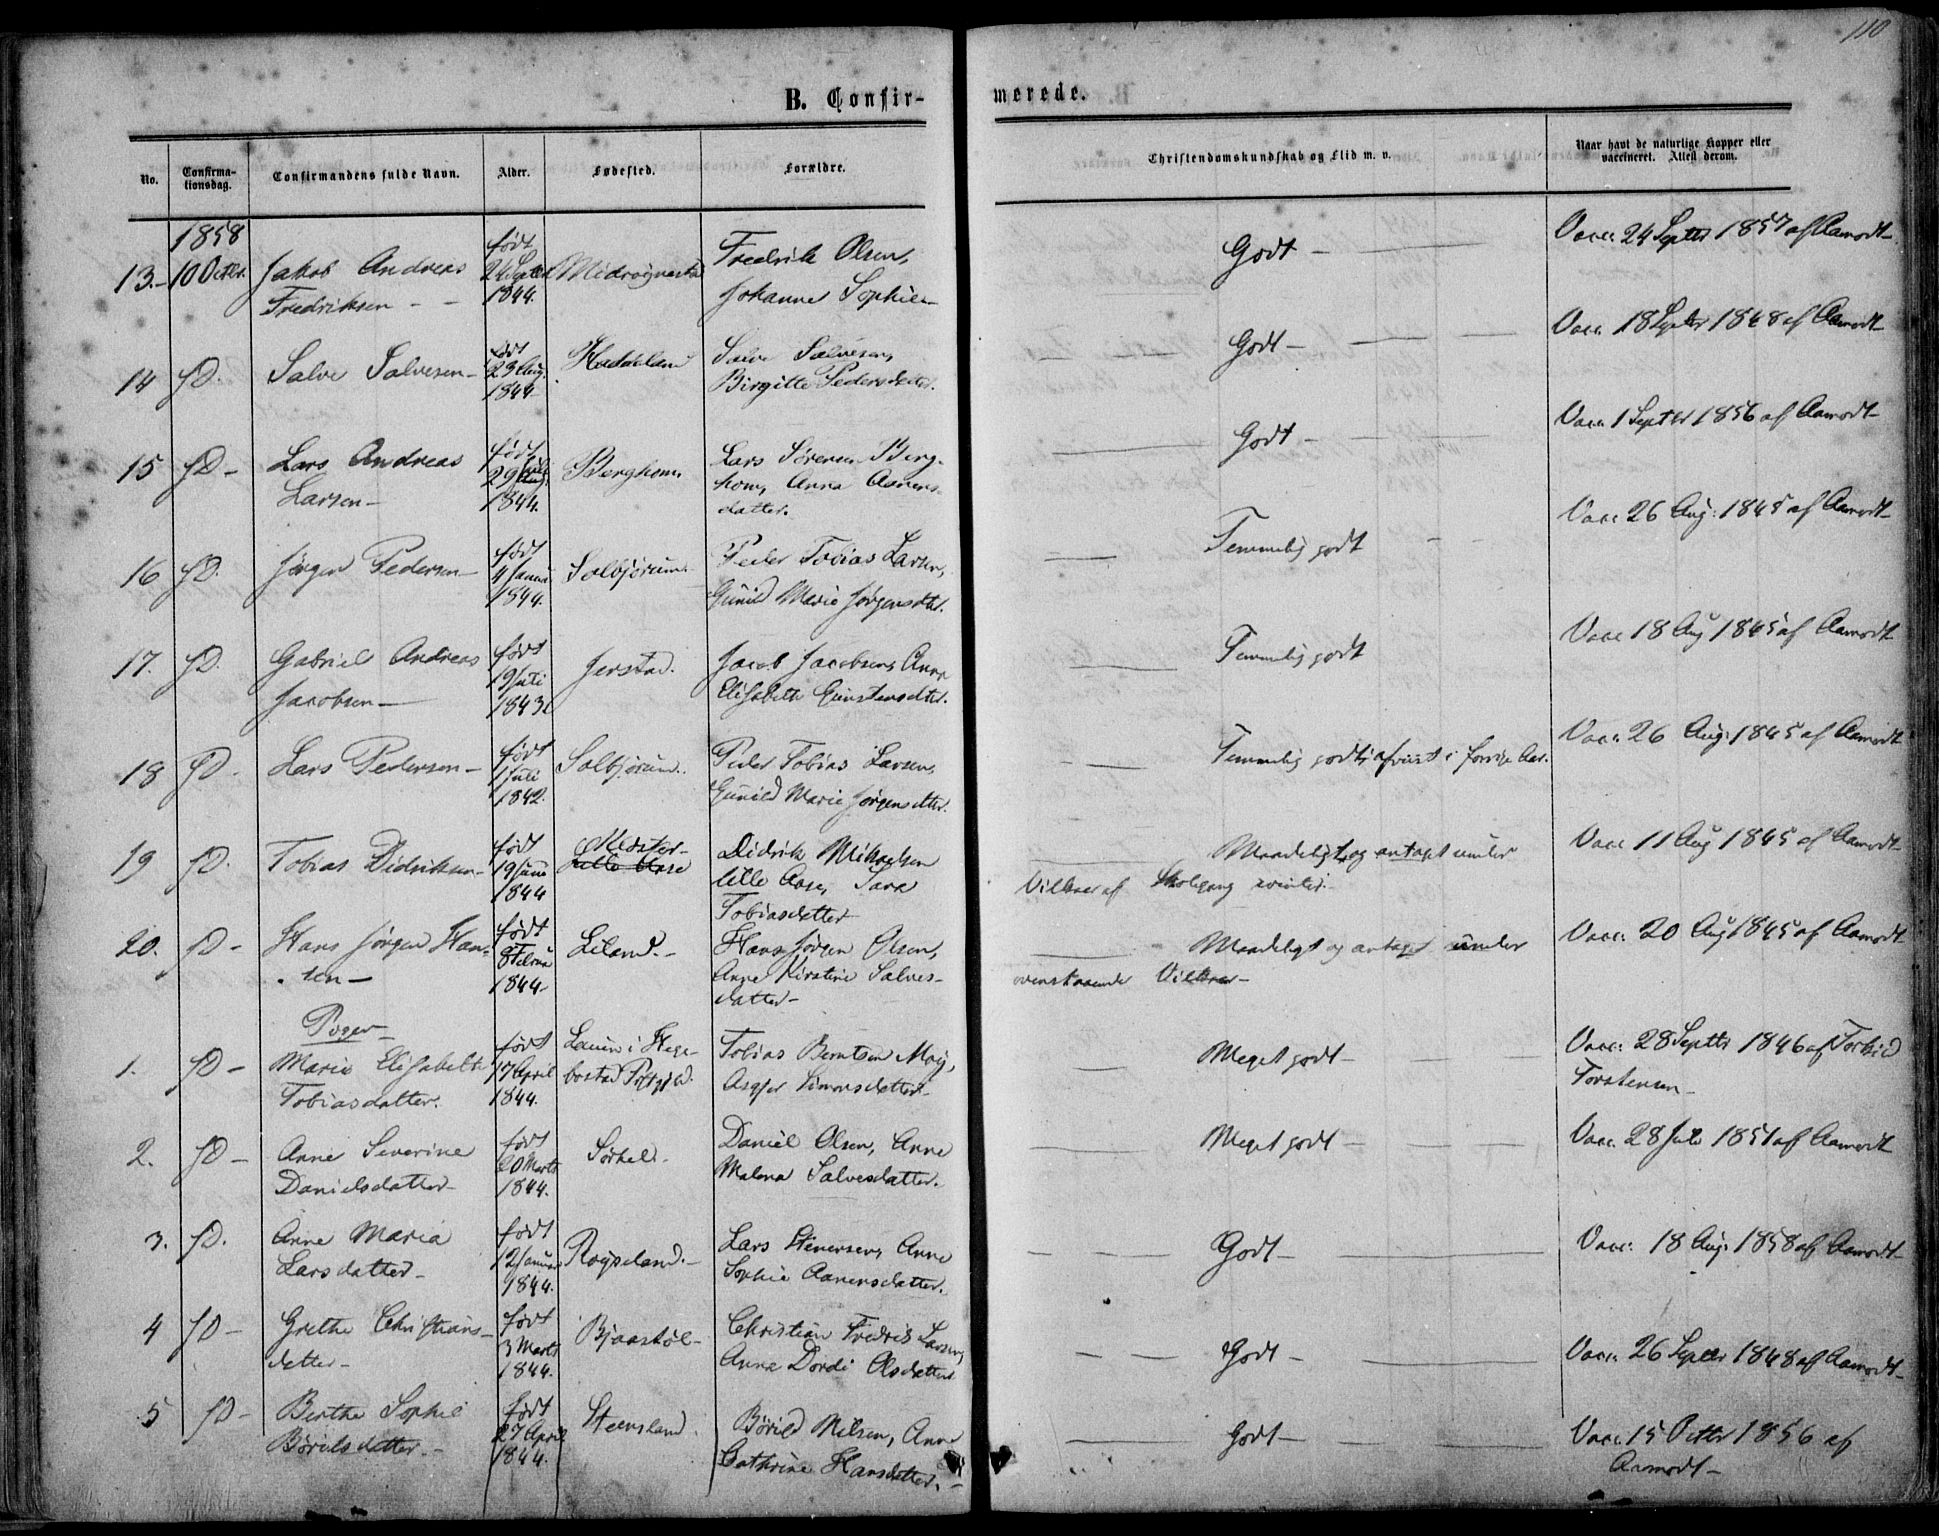 110
B. Confir-
merede.
No.
Confirma-
tionsdag.
Confirmandens fulde Navn.
Alder.
Fødested.
Forældre.
Christendomskundskab og Flid m. v.
Naar havt de naturlige Kopper eller
vaccineret. Attest derom.
1858
13.- 10 Octbr. Jakob Andreas Fredriksen - - født 24 Septbr 1844. Fredrik Olsen, Johanne Sophie Godt - Vacc. 24 Septbr 1857 af Aamodt-
14 fD. Salve Salvesen- født 23 Aug. 1844 Salve Salvesen, Birgitte Pedersdatter. Godt - Vacc. 18 Septbr 1848 af Aamodt-
15 fD - Lars Andreas Larsen- født 29 1844. Berghom. Lars Sørensen Berg-
hom, Anna Aanens-
datter. Godt - Vacc. 1 Septbr 1856 af Aamodt-
16 fD. Jørgen Pedersen- født 4 Januar 1844. Solbjørum. Peder Tobias Larsen, Gunild Marie Jørgensdtr. Temmelig godt Vacc. 26 Aug. 1845 af Aamodt-
17. fD. Gabriel Andreas Jacobsen- født 19 Juli 1843. Jerstad. Jacob Jacobsen, Anne Elisabeth Gunstensdtr. Temmelig godt Vacc 18 Aug 1845 af Aamodt
18 fD. Lars Pedersen- født 1 Juli 1842. Solbjørum. Peder Tobias Larsen, Gunild Marie Jørgensdtter. Temmelig godt; afviist i forrige Aar. Vacc. 26 Aug. 1845 af Aamodt
19 fD. Tobias Didriksen- født 19 1844 Lille Aase Didrik Mikaelsen lille Aase, Sara Tobiasdatter Maadeligt, og antaget under
Vilkaar af Skolegang i vinter. Vacc 11 Aug 1845 af Aamodt-
20. fD - Hans Jørgen Han-
sen- født 8 Februar 1844- Leland.- Hans Jørgen Olsen, Anne Kirstine Salves-
datter- Maadeligt og antaget under
ovenstaaende Vilkaar- Vacc. 20 Aug 1845 af Aamodt-
Piger
1. fD - Marie Elisabeth Tobiasdatter. født 17 April 1844. i Hege-
bostad Tobias Berntsen Moi, Asgjer Simonsdatter- Meget godt- Vacc. 28 Septbr 1846 af
Torstensen-
2. fD - Anne Severine Danielsdatter- født 20 Marts 1844. Sørhel.- Daniel Olsen, Anne Malena Salvesdatter. Meget godt - Vacc. 28 Juli 1851 af Aamodt
3. fD. Anne Maria Larsdatter- født 12 Januar 1844. Røyseland.- Lars Stenersen, Anne Sophie Aanensdatter. Godt- Vacc. 18 Aug. 1858 af Aamodt-
4 fD - Grethe Christians-
datter- født 3 Marts 1844. Bjaastøl- Christian Fredrik Larsen, Anne Dordi Olsdatter Godt - Vacc. 26 Septbr 1848 af Aamodt-
5 fD - Berthe Sophie Børildsdatter.- født 27 April 1844. Steensland. Børild Nilsen, Anne Cathrine Hansdatter.- Godt- Vacc. 15 Octbr 1856 af
Aamodt-